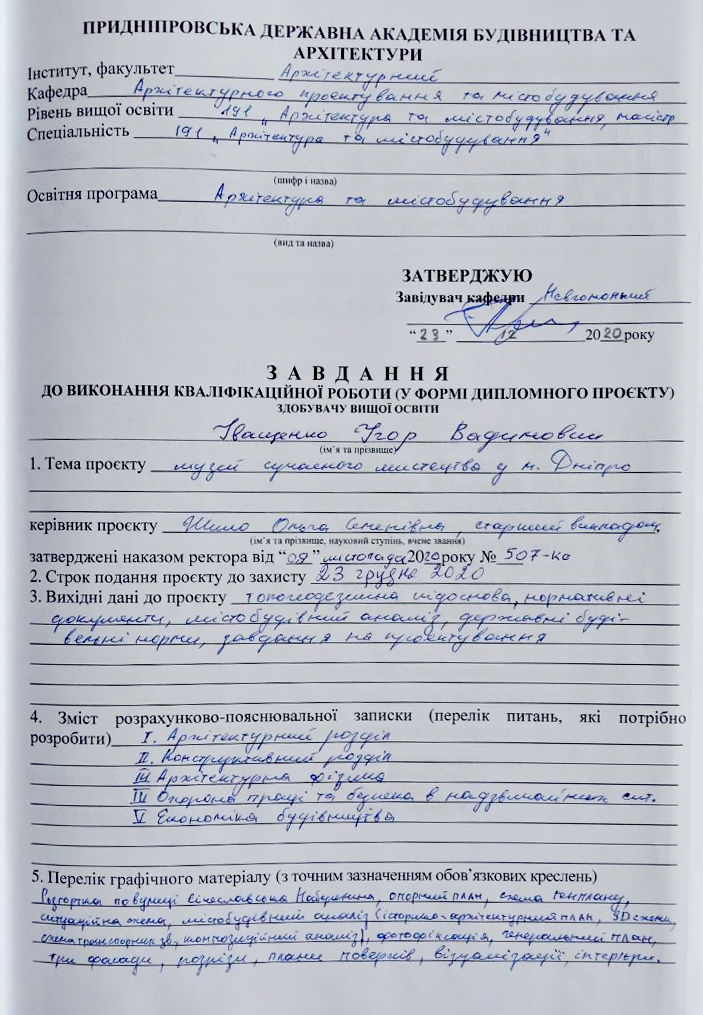 ПРИДНІПРОВСЬКА ДЕРЖАВНА АКАДЕМІЯ БУДІВНИЦТВА ТА
АРХІТЕКТУРИ
Інститут, факультет Архітектурний
Кафедра Архітектурного проектування та містобудування
Рівень вищої освіти 191 „Архітектура та містобудування, магістр
Спеціальність 191 „Архітектура та містобудування"
(шифр і назва)
Освітня програма Архітектура та містобудування
(вид та назва)
ЗАТВЕРДЖУЮ
Завідувач кафедри Невгомонний
“23” 12 2020 року
ЗАВДАННЯ
ДО ВИКОНАННЯ КВАЛІФІКАЦІЙНОЇ РОБОТИ (У ФОРМІ ДИПЛОМНОГО ПРОЄКТУ)
ЗДОБУВАЧУ ВИЩОЇ ОСВІТИ
Іващенко Ігор Вадимович
(ім’я та прізвище)
1. Тема проєкту музей сучасного мистецтва у м. Дніпро
керівник проєкту Шило Ольга Семенівна, старший викладач,
(ім’я та прізвище, науковий ступінь, вчене звання)
затверджені наказом ректора від “09” листопада 2020 року № 507-кс
2. Строк подання проєкту до захисту 23 грудня 2020
3. Вихідні дані до проєкту топогеодезична підоснова, нормативні
документи, містобудівний аналіз, державні буді-
вельні норми, завдання на проектування
4. Зміст розрахунково-пояснювальної записки (перелік питань, які потрібно
розробити) I. Архітектурний розділ
II. Конструктивний розділ
III Архітектурна фізика
IIII Охорона праці та безпека в надзвичайних сит.
V Економіка будівництва
5. Перелік графічного матеріалу (з точним зазначенням обов’язкових креслень)
Розгортка по вулиці Січеславська Набережна, опорний план, схема генплану,
ситуаційна схема, містобудівний аналіз (історико-архітектурний план, 3D схема,
схема транспортних зв, композиційний аналіз), фотофіксація, генеральний план,
три фасади, розрізи, плани поверхів, візуалізації, інтер'єри.